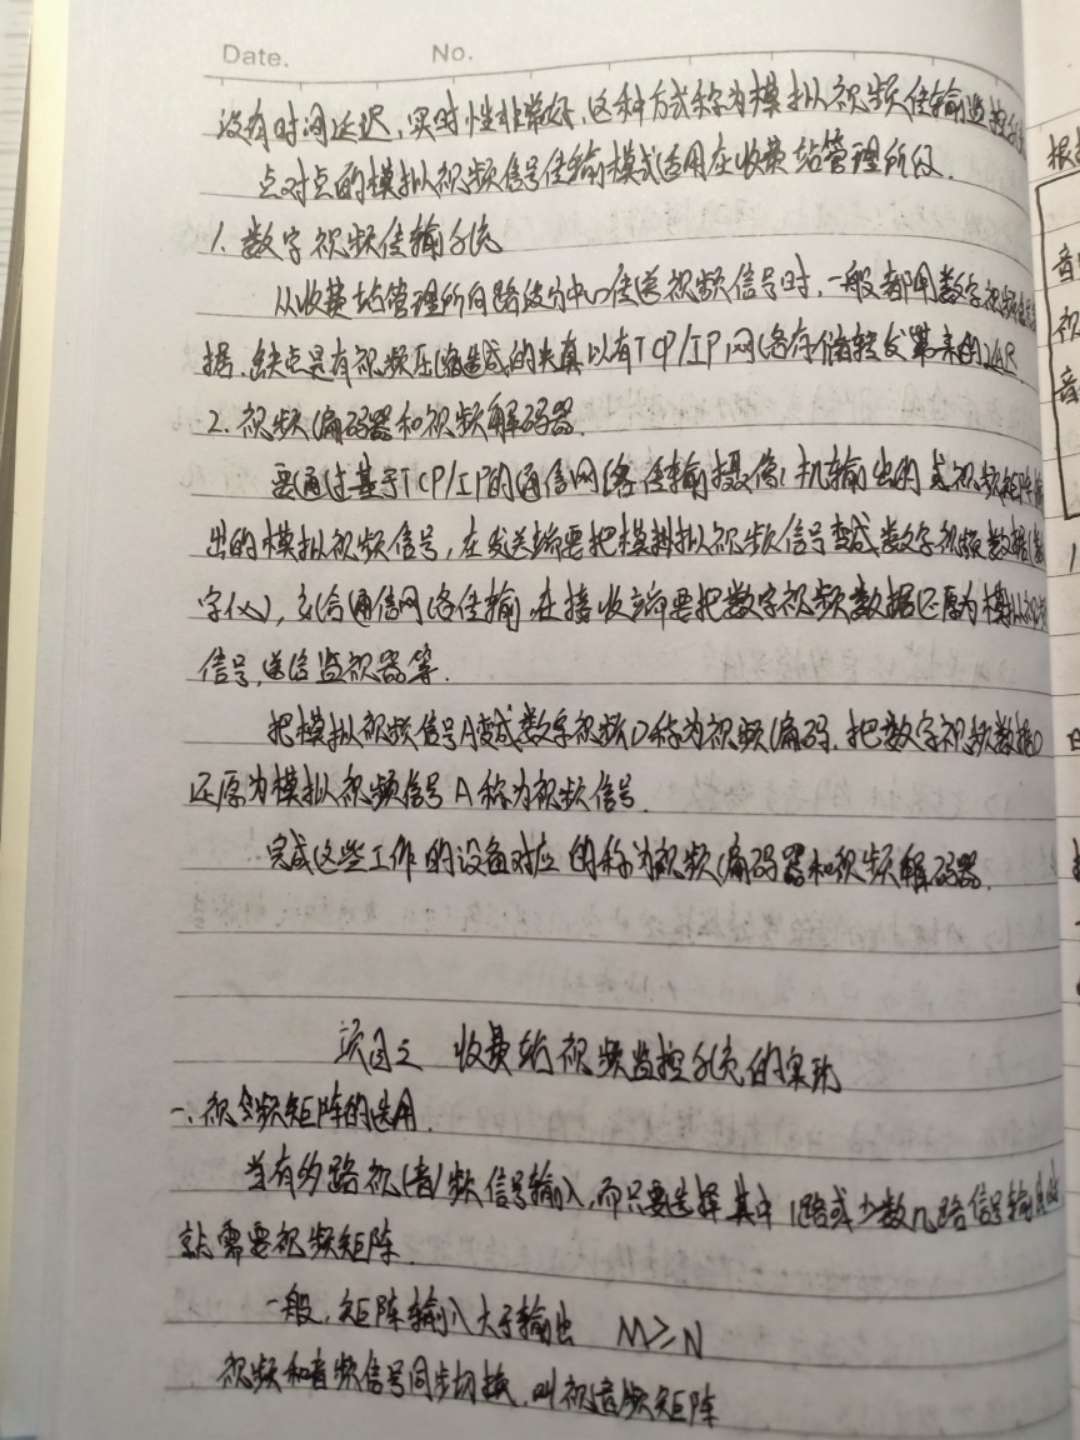 Date. No.
没有时间延迟,实时性非常好,这种方式称为模拟视频传输监控系统
点对点的模拟视频信号传输模式适用在收费站管理所仅.
1. 数字视频传输系统
从收费站管理所向路段分中心传送视频信号时,一般都用数字视频
据.缺点是有视频压缩造成的失真以有TCP/IP网络存储转发带来的
2. 视频编码器和视频解码器.
要通过基于TCP/IP的通信网络传输摄像机输出的或视频矩阵输
出的模拟视频信号,在发送端要把模拟视频信号变成数字视频数据(数
字化),交给通信网络传输,在接收端要把数字视频数据还原为模拟视频
信号,送给监视器等.
把模拟视频信号A变成数字视频D称为视频编码.把数字视频数据D
还原为模拟视频信号A称为视频信号.
完成这些工作的设备对应的称为视频编码器和视频解码器.
项目三 收费站视频监控系统的实现
一、视频矩阵的选用.
当有多路视(音)频信号输入,而只要选择其中1路或少数几路信号输出时
就需要视频矩阵.
一般,矩阵输入大于输出 M≥N
视频和音频信号同步切换,叫视音频矩阵
根
音
视
音